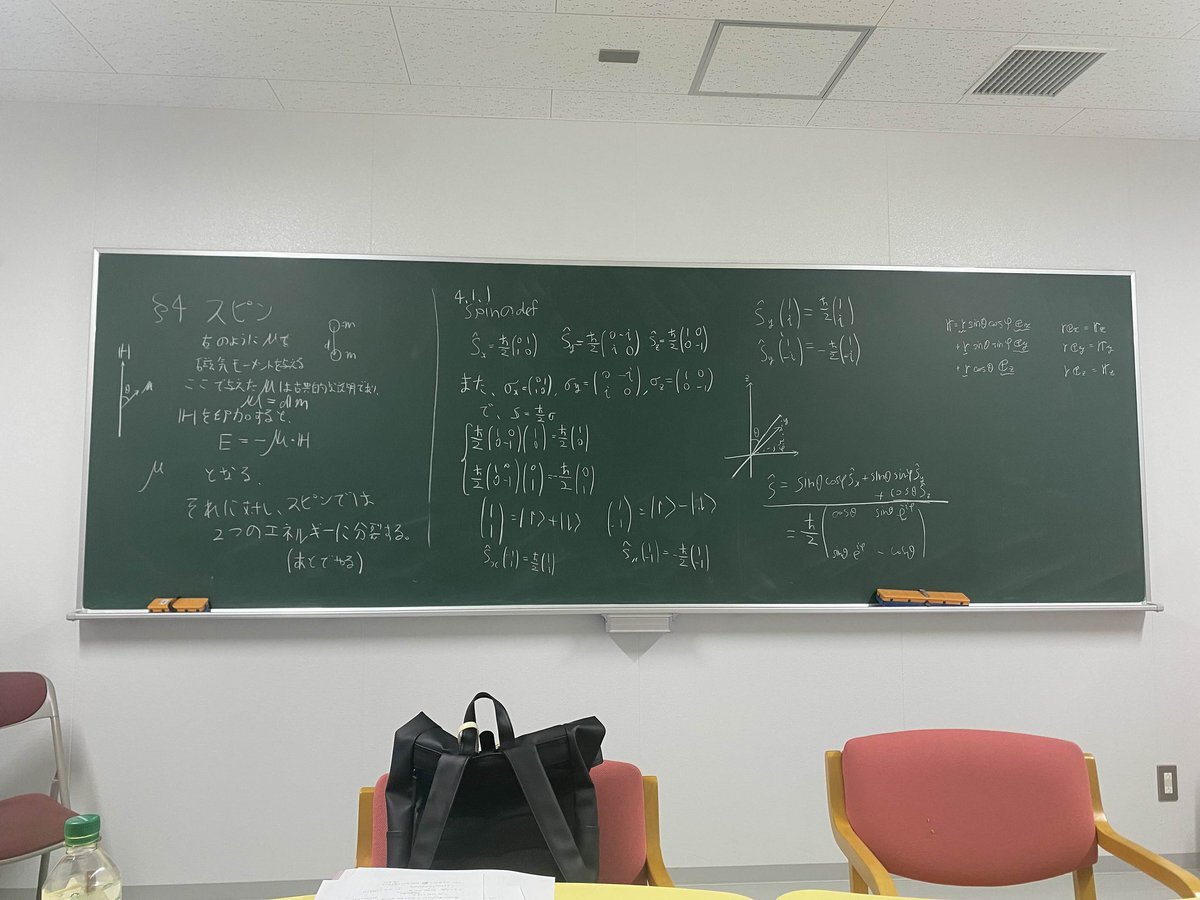 §4 スピン
右のようにμで
磁気モーメントを与える
ここで与えたμは古典的な説明であり、
μ = dm
Hを印加すると、
E = -μ・H
となる。
それに対し、スピンでは
2つのエネルギーに分裂する。
(あとでやる)
m
d
m
H
θ
μ
μ
4.1.1
spinのdef
Ŝx = ħ/2 (0 1; 1 0) Ŝy = ħ/2 (0 -i; i 0) Ŝz = ħ/2 (1 0; 0 -1)
また、σx = (0 1; 1 0), σy = (0 -i; i 0), σz = (1 0; 0 -1)
で、S = ħ/2 σ
ħ/2 (1 0; 0 -1)(1; 0) = ħ/2 (1; 0)
ħ/2 (1 0; 0 -1)(0; 1) = -ħ/2 (0; 1)
(1; 1) = |↑> + |↓> (1; -1) = |↑> - |↓>
Ŝx (1; 1) = ħ/2 (1; 1) Ŝx (1; -1) = -ħ/2 (1; -1)
Ŝy (1; i) = ħ/2 (1; i)
Ŝy (1; -i) = -ħ/2 (1; -i)
z
θ
Ŝ = sinθ cosφ Ŝx + sinθ sinφ Ŝy
+ cosθ Ŝz
= ħ/2 (cosθ sinθ e^iφ; sinθ e^iφ -cosθ)
r = r sinθ cosφ ex
+ r sinθ sinφ ey
+ r cosθ ez
r ex = rx
r ey = ry
r ez = rz